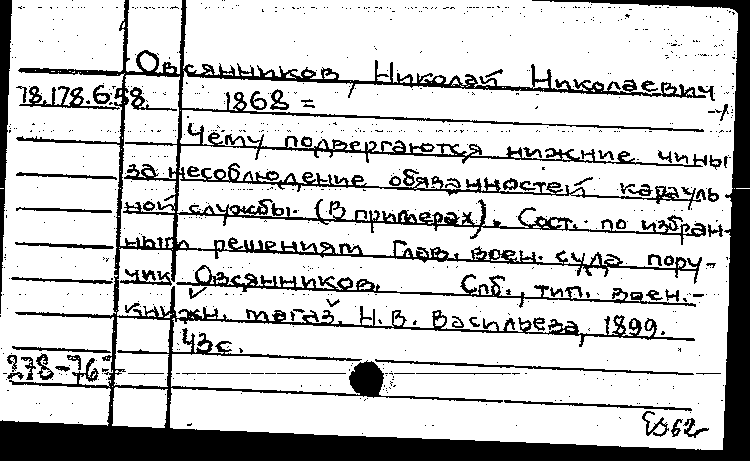 Овсянников, Николай Николаевич
18.178.6.58. 1868 =
Чему подвергаются нижние чины
за несоблюдение обязанностей карауль-
ной службы. (В примерах). Сост. по избран-
ным решениям Глав. воен. суда пору-
чик Овсянников. Спб., тип. воен.-
книжн. магаз. Н. В. Васильева, 1899.
43с.
278-767